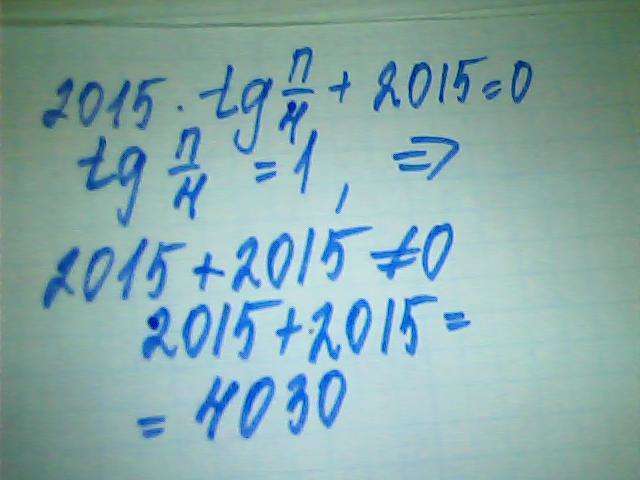 2015 · tg π/4 + 2015 = 0
tg π/4 = 1, ⇒
2015 + 2015 ≠ 0
2015 + 2015 =
= 4030